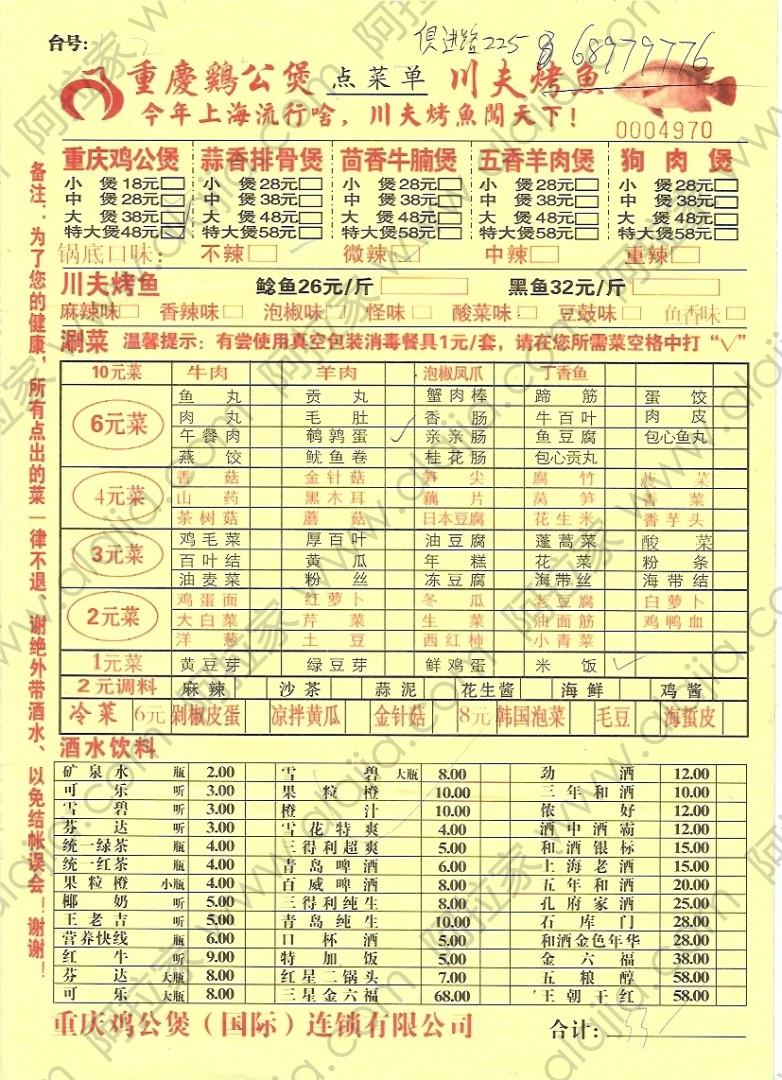 台号:
俱进路225号 68979776
重慶鷄公煲 点菜单 川夫烤魚
今年上海流行啥，川夫烤魚闖天下！
0004970
备注：为了您的健康，所有点出的菜一律不退、谢绝外带酒水、以免结帐误会！谢谢！
重庆鸡公煲 蒜香排骨煲 茴香牛腩煲 五香羊肉煲 狗肉煲
小煲18元 小煲28元 小煲28元 小煲28元 小煲28元
中煲28元 中煲38元 中煲38元 中煲38元 中煲38元
大煲38元 大煲48元 大煲48元 大煲48元 大煲48元
特大煲48元 特大煲58元 特大煲58元 特大煲58元 特大煲58元
锅底口味： 不辣 微辣 中辣 重辣
川夫烤鱼 鲶鱼26元/斤 黑鱼32元/斤
麻辣味 香辣味 泡椒味 怪味 酸菜味 豆鼓味 鱼香味
涮菜 温馨提示：有尝使用真空包装消毒餐具1元/套，请在您所需菜空格中打“√”
10元菜 牛肉 羊肉 泡椒凤爪 丁香鱼
6元菜
鱼丸 贡丸 蟹肉棒 蹄筋 蛋饺
肉丸 毛肚 香肠 牛百叶 肉皮
午餐肉 鹌鹑蛋 ✓ 亲亲肠 鱼豆腐 包心鱼丸
燕饺 鱿鱼卷 桂花肠 包心贡丸
4元菜
香菇 金针菇 笋尖 腐竹 菠菜
山药 黑木耳 藕片 莴笋 香菜
茶树菇 蘑菇 日本豆腐 花生米 香芋头
3元菜
鸡毛菜 厚百叶 油豆腐 蓬蒿菜 酸菜
百叶结 黄瓜 年糕 花菜 粉条
油麦菜 粉丝 冻豆腐 海带丝 海带结
2元菜
鸡蛋面 红萝卜 冬瓜 老豆腐 白萝卜
大白菜 芹菜 生菜 油面筋 鸡鸭血
洋葱 土豆 西红柿 小青菜
1元菜 黄豆芽 绿豆芽 鲜鸡蛋 米饭 ✓
2元调料 麻辣 沙茶 蒜泥 花生酱 海鲜 鸡酱
冷菜 6元 剁椒皮蛋 凉拌黄瓜 金针菇 8元 韩国泡菜 毛豆 海蜇皮
酒水饮料
矿泉水 瓶 2.00 雪碧 大瓶 8.00 劲酒 12.00
可乐 听 3.00 果粒橙 10.00 三年和酒 10.00
雪碧 听 3.00 橙汁 10.00 侬好 12.00
芬达 听 3.00 雪花特爽 4.00 酒中酒霸 12.00
统一绿茶 瓶 4.00 三得利超爽 5.00 和酒银标 15.00
统一红茶 瓶 4.00 青岛啤酒 6.00 上海老酒 15.00
果粒橙 小瓶 4.00 百威啤酒 8.00 五年和酒 20.00
椰奶 听 5.00 三得利纯生 8.00 孔府家酒 25.00
王老吉 听 5.00 青岛纯生 10.00 石库门 28.00
营养快线 瓶 6.00 口杯酒 5.00 和酒金色年华 28.00
红牛 听 9.00 特加饭 5.00 金六福 38.00
芬达 大瓶 8.00 红星二锅头 7.00 五粮醇 58.00
可乐 大瓶 8.00 三星金六福 68.00 王朝干红 58.00
重庆鸡公煲（国际）连锁有限公司 合计: 53
阿拉家 www.alajia.com